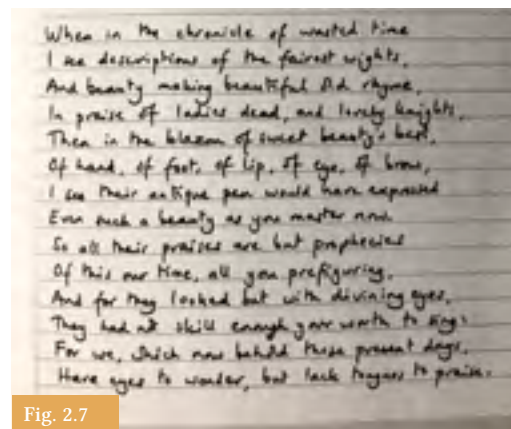 When in the chronicle of wasted time
I see descriptions of the fairest wights,
And beauty making beautiful old rhyme,
In praise of ladies dead, and lovely knights,
Then in the blazon of sweet beauty's best,
Of hand, of foot, of lip, of eye, of brow,
I see their antique pen would have expressed
Even such a beauty as you master now.
So all their praises are but prophecies
Of this our time, all you prefiguring,
And for they looked but with divining eyes,
They had not skill enough your worth to sing:
For we, which now behold these present days,
Have eyes to wonder, but lack tongues to praise.
Fig. 2.7